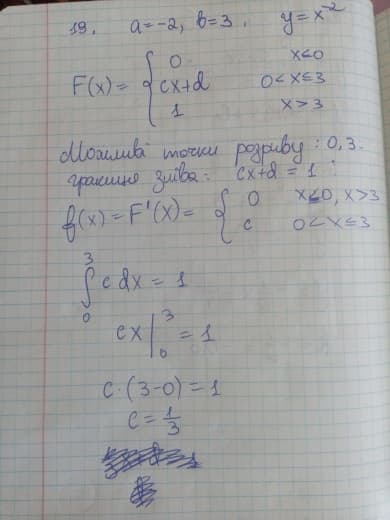 19. a=-2, b=3. y=x^-2
F(x) = { 0 x≤0
cx+d 0<x≤3
1 x>3
Можливі точки розриву: 0, 3.
границя зліва: cx+d = 1
f(x) = F'(x) = { 0 x≤0, x>3
c 0<x≤3
∫_0^3 c dx = 1
cx |_0^3 = 1
c·(3-0) = 1
c = 1/3